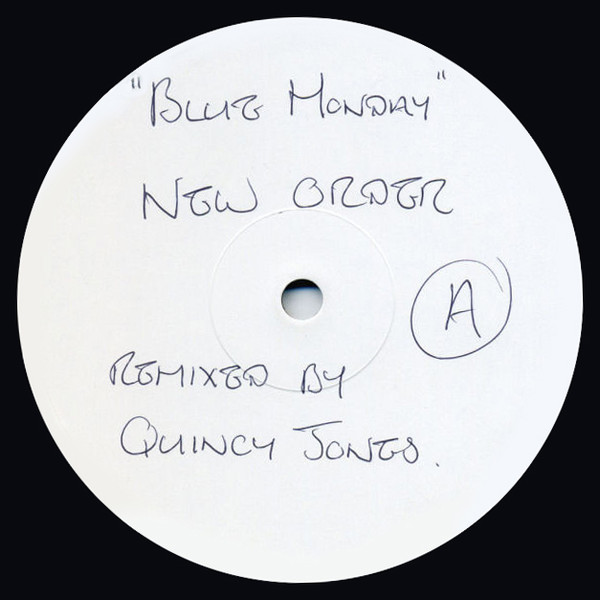 "Blue Monday"
New Order
A
Remixed by
Quincy Jones.